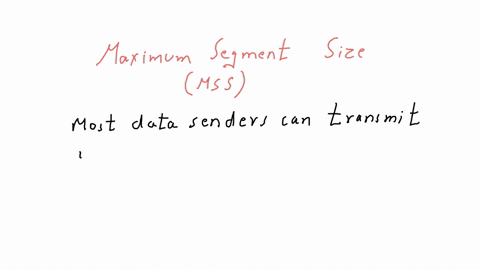 Maximum Segment Size
(MSS)
Most data senders can transmit